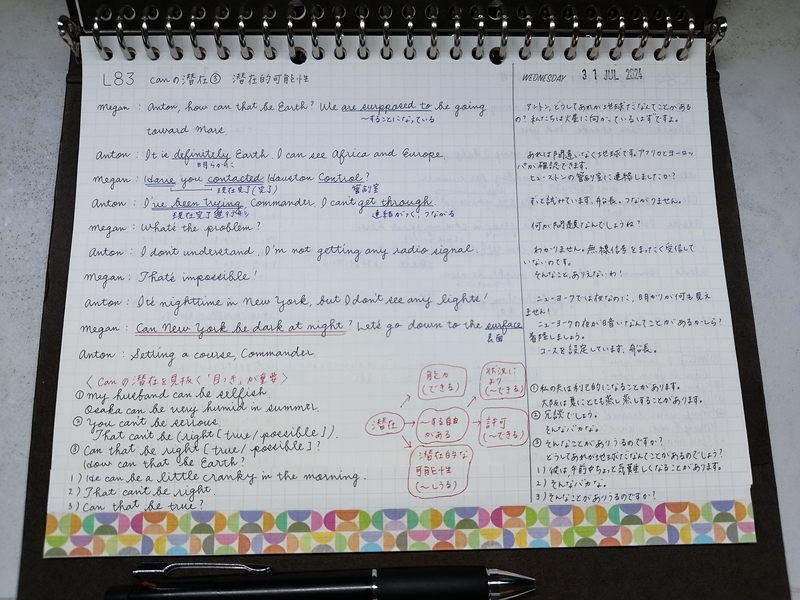 L83 canの潜在③ 潜在的可能性
WEDNESDAY 31 JUL 2024
Megan : Anton, how can that be Earth? We are supposed to be going
〜することになっている
toward Mars.
Anton : It is definitely Earth. I can see Africa and Europe.
明らかに
Megan : Have you contacted Houston Control?
現在完了(完了) 管制室
Anton : I've been trying, Commander. I can't get through.
現在完了進行形 連絡がつく、つながる
Megan : What's the problem?
Anton : I don't understand, I'm not getting any radio signal.
Megan : That's impossible!
Anton : It's nighttime in New York, but I don't see any lights!
Megan : Can New York be dark at night? Let's go down to the surface
表面
Anton : Setting a course, Commander.
アントン、どうしてあれが地球だなんてことがある
の? 私たちは火星に向かっているはずですよ。
あれは間違いなく地球です。アフリカとヨーロッ
パが確認できます。
ヒューストンの管制室に連絡しましたか?
ずっと試しています、船長。つながりません。
何が問題なんでしょうね?
わかりません。無線信号をまったく受信して
いないのです。
そんなこと、ありえないわ!
ニューヨークでは夜なのに、明かりが何も見え
ません!
ニューヨークの夜が暗いなんてことがあるかしら?
着陸しましょう。
コースを設定しています、船長。
〈 canの潜在を見抜く「目つき」が重要 〉
① My husband can be selfish.
Osaka can be very humid in summer.
② You can't be serious.
That can't be (right [true/possible]).
③ Can that be right [true/possible]?
How can that be Earth?
1) He can be a little cranky in the morning.
2) That can't be right.
3) Can that be true?
潜在
能力
(できる)
〜する自由
がある
潜在的な
可能性
(〜しうる)
状況に
より
(〜できる)
許可
(〜できる)
① 私の夫は利己的になることがあります。
大阪は夏にとても蒸し蒸しすることがあります。
② 冗談でしょう。
そんなバカな。
③ そんなことがありうるのですか?
どうしてあれが地球だなんてことがあるのでしょう?
1) 彼は午前中ちょっと気難しくなることがあります。
2) そんなバカな。
3) そんなことがありうるのですか?